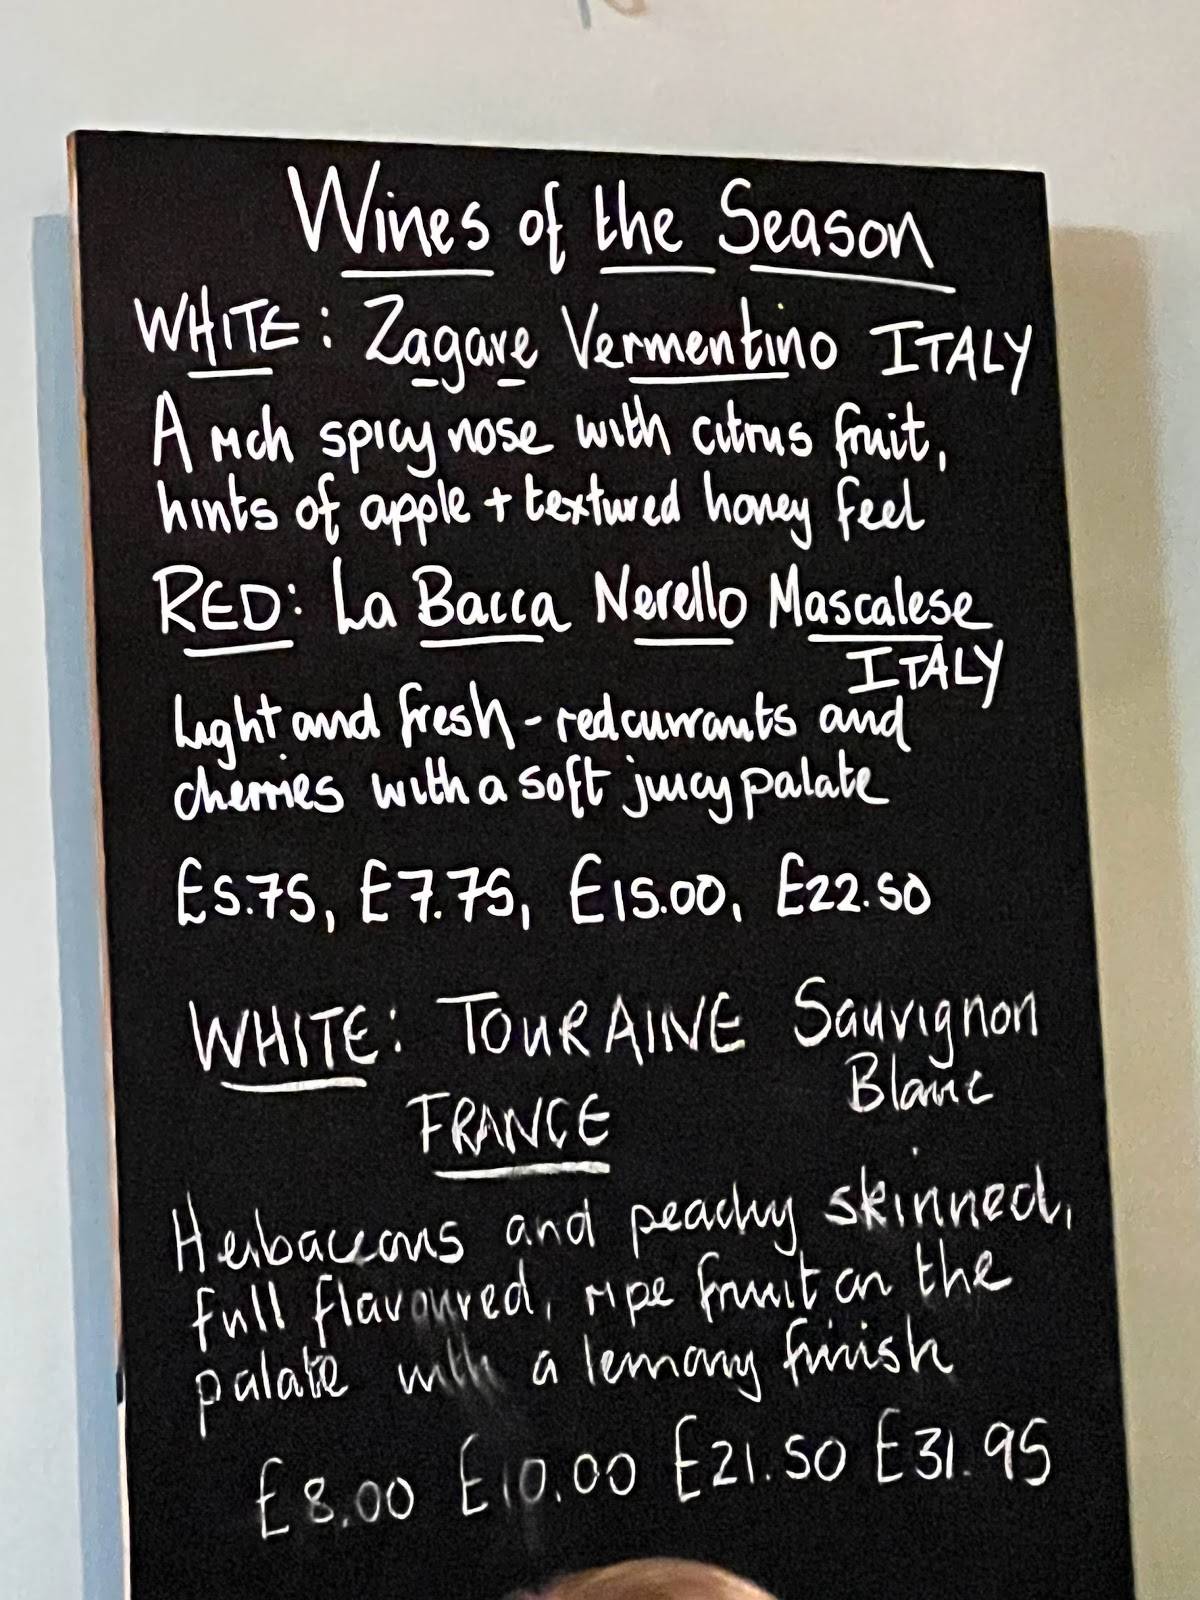 Wines of the Season
WHITE: Zagare Vermentino ITALY
A rich spicy nose with citrus fruit,
hints of apple + textured honey feel
RED: La Bacca Nerello Mascalese
ITALY
Light and fresh - redcurrants and
cherries with a soft juicy palate
£5.75, £7.75, £15.00, £22.50
WHITE: TOURAINE Sauvignon
Blanc
FRANCE
Herbaceous and peachy skinned,
full flavoured, ripe fruit on the
palate with a lemony finish
£8.00 £10.00 £21.50 £31.95